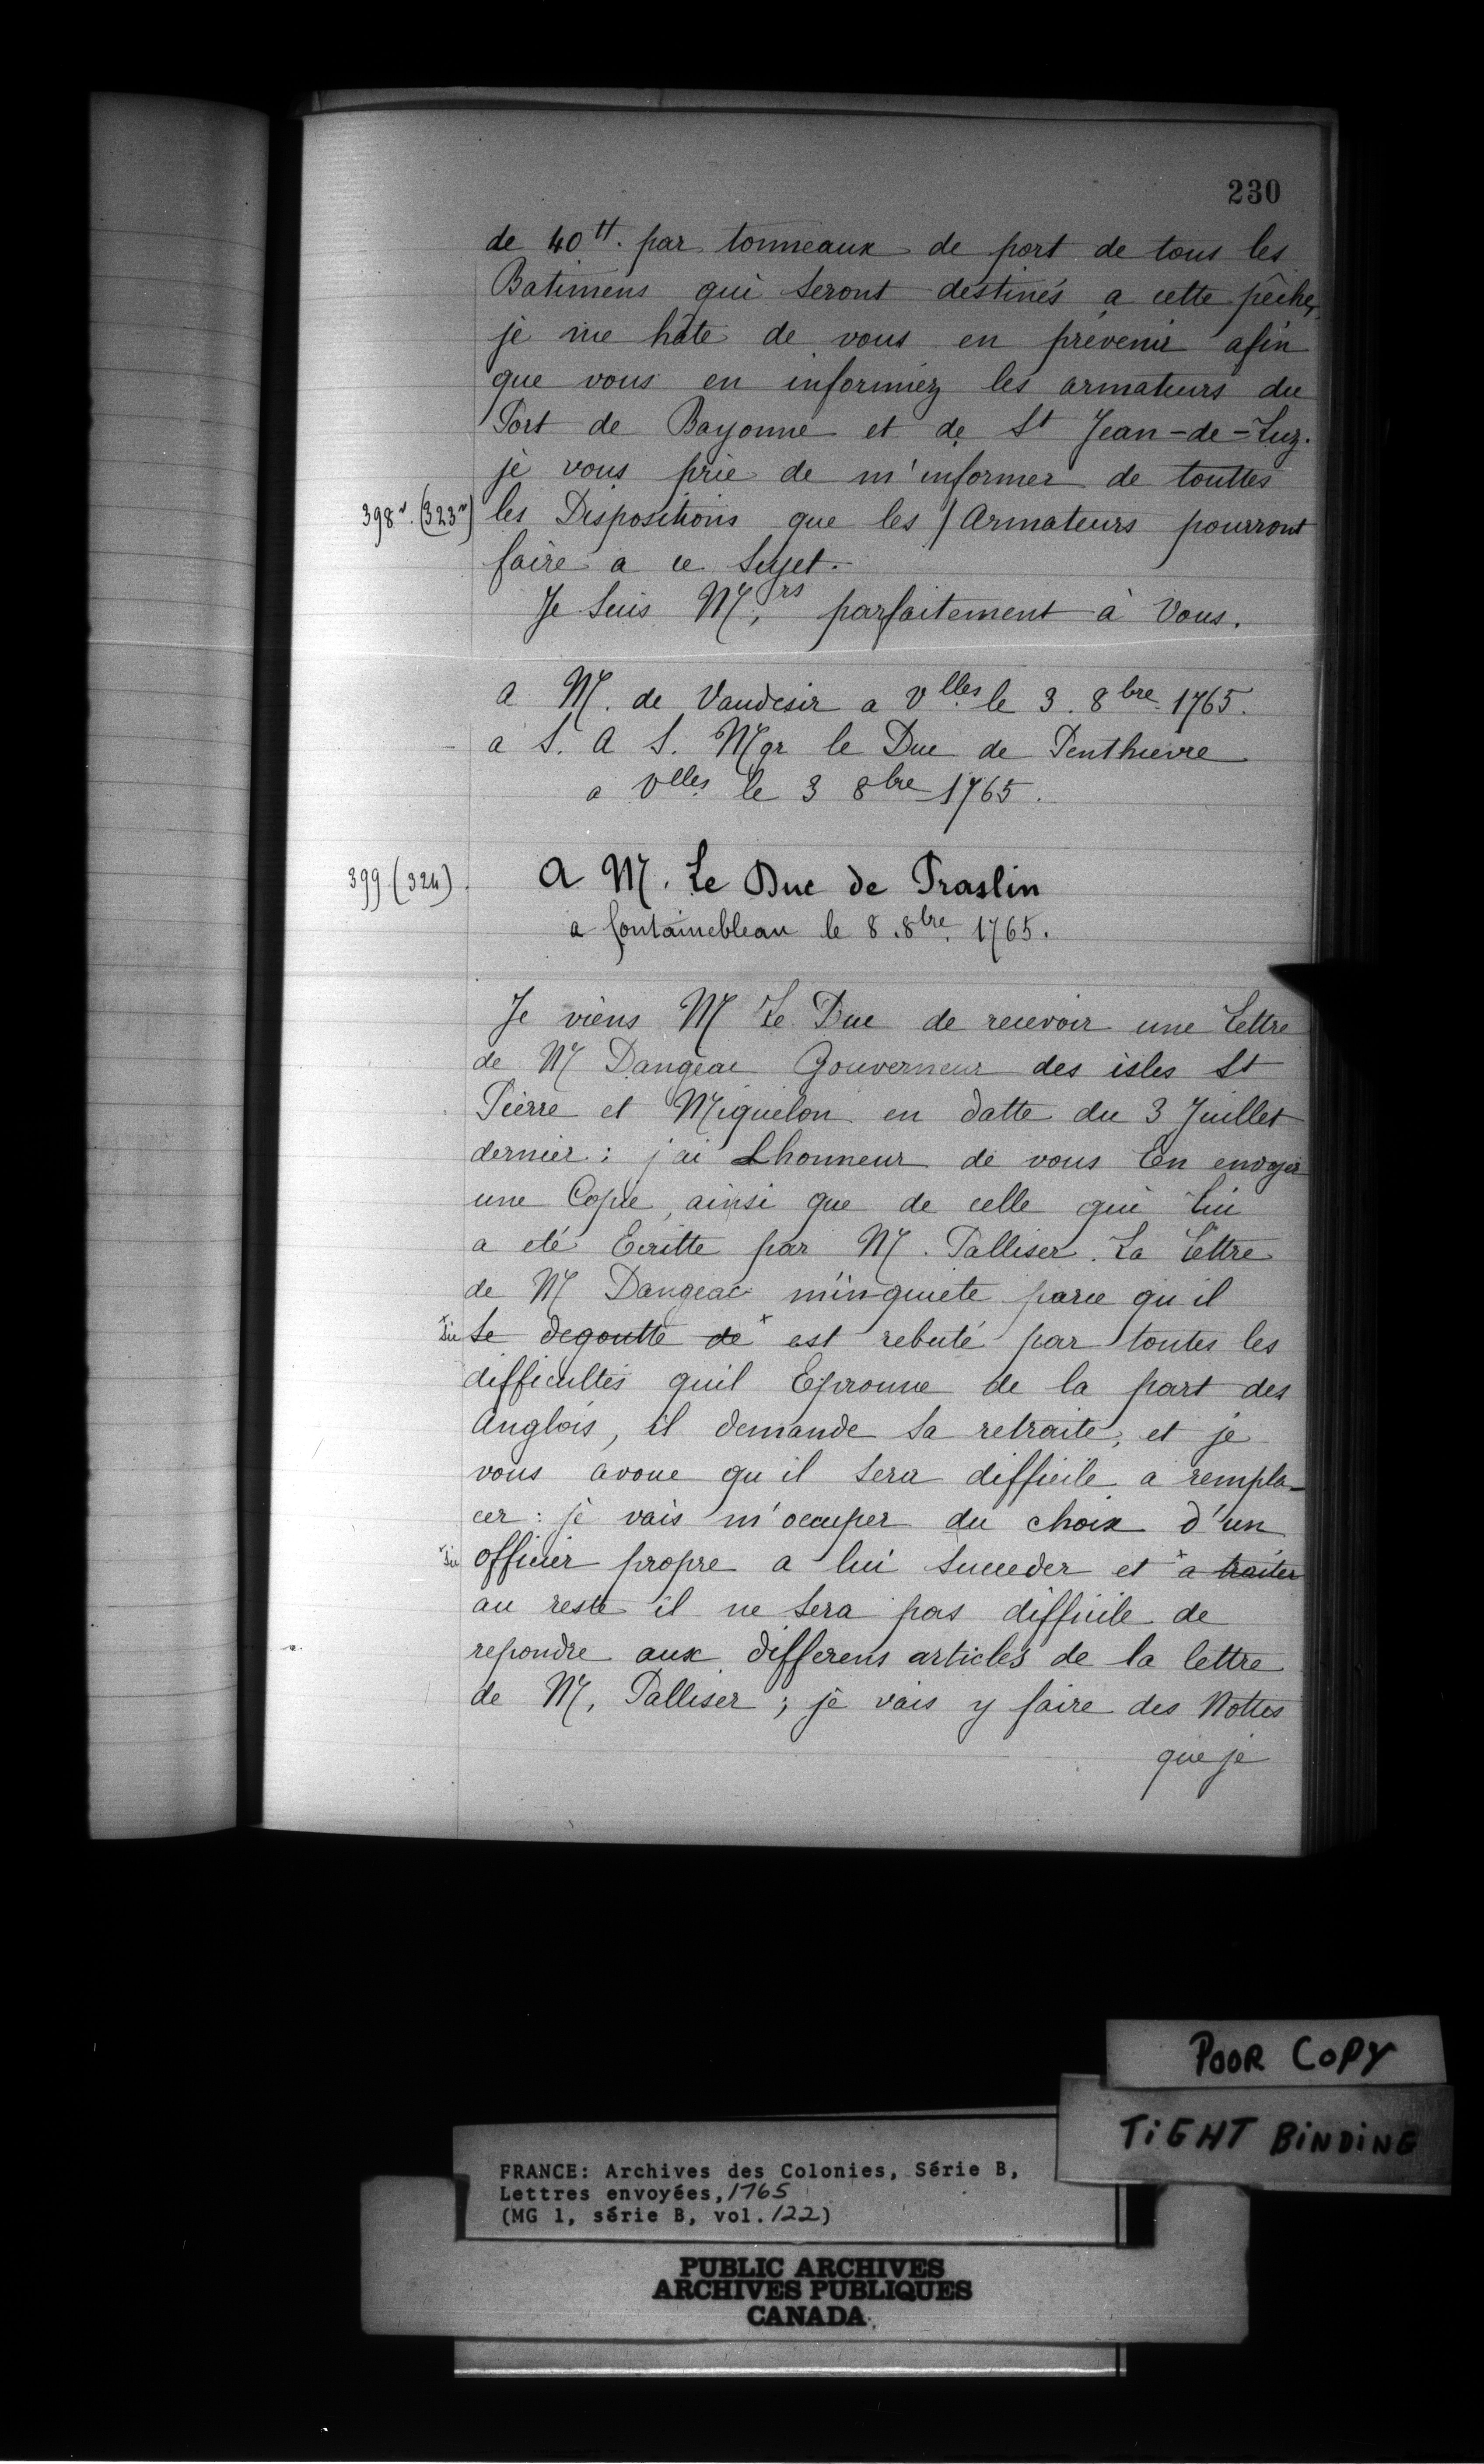 230
de 40tt. par tonneaux de port de tous les
Batimens qui seront destinés a cette pêche,
je me hâte de vous en prévenir afin
que vous en informiez les armateurs du
Port de Bayonne et de St Jean-de-Luz.
je vous prie de m'informer de touttes
398v. (323v) les Dispositions que les / Armateurs pourront
faire a ce sujet.
Je suis Mrs, parfaitement à Vous.
a M. de Vaudesir a vlles le 3. 8bre 1765.
a S. A S. Mgr le Duc de Penthievre
a vlles le 3 8bre 1765.
399 (324). A M. Le Duc de Praslin
a fontainebleau le 8. 8bre. 1765.
Je viens M Le Duc de recevoir une Lettre
de M Dangeac Gouverneur des isles St
Pierre et Miquelon en datte du 3 Juillet
dernier : j'ai Lhonneur de vous En envoyer
une Copie, ainsi que de celle qui lui
a eté Ecritte par M. Palliser. La Lettre
de M Dangeac m'inquiete parce qu'il
se degoutte de x est rebuté par toutes les
difficultés quil Eprouve de la part des
Anglois, il demande sa retraite, et je
vous avoue qu'il sera difficile a rempla-
cer : je vais m'occuper du choix d'un
officier propre a lui succeder et x a traiter
au reste il ne sera pas difficile de
repondre aux differens articles de la lettre
de M. Palliser ; je vais y faire des Nottes
que je
POOR COPY
TIGHT BINDING
FRANCE: Archives des Colonies, Série B,
Lettres envoyées, 1765
(MG 1, série B, vol. 122)
PUBLIC ARCHIVES
ARCHIVES PUBLIQUES
CANADA